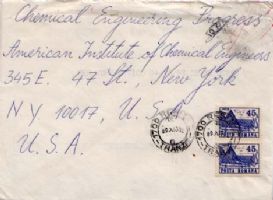 Chemical Engineering Progress
American Institute of Chemical Engineers
345 E. 47 St., New York
N Y 10017, U. S. A
U. S. A.
45
POSTA ROMANA
45
POSTA ROMANA